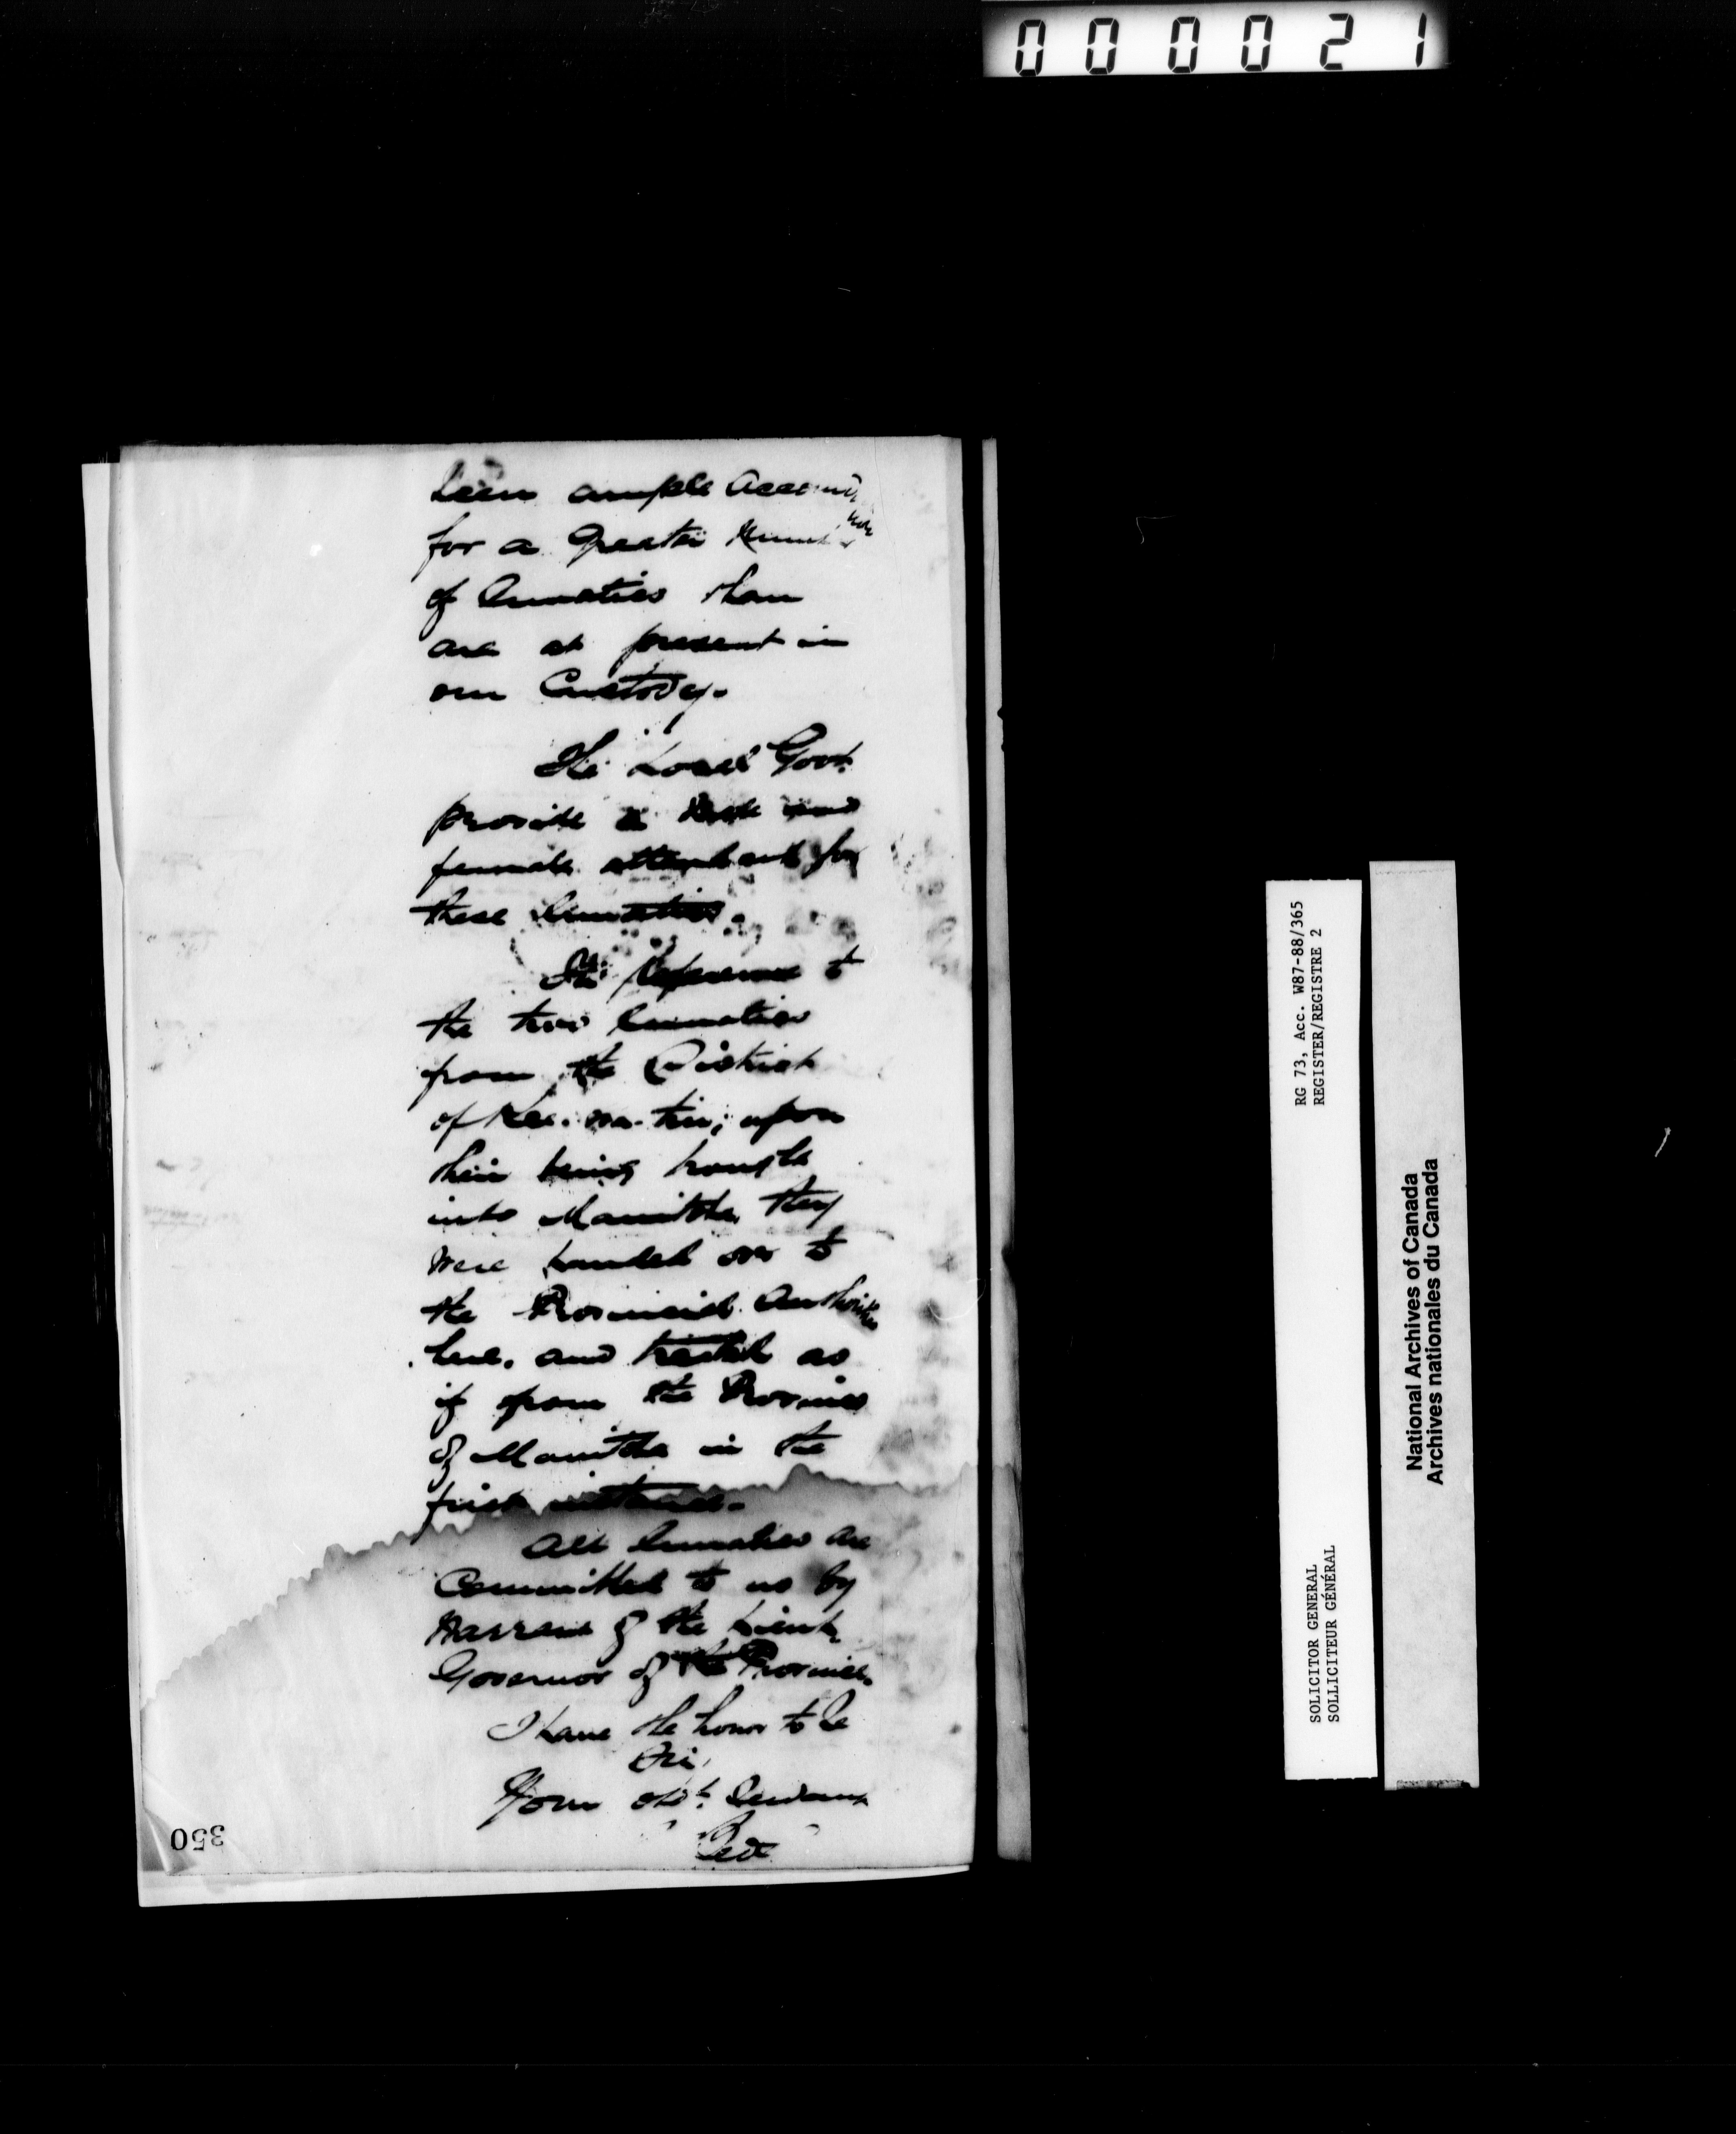 000021
been ample accommodation
for a Greater Number
of Lunatics than
are at present in
our Custody.
The Local Govt.
provide a male and
female attendant for
these Lunatics.
In reference to
the two Lunatics
from the District
of Kee-wa-tin; upon
their being brought
into Manitoba they
were handed over to
the Provincial Authorities
here. and treated as
if from the Province
of Manitoba in the
first instance.
All Lunatics are
Committed to us by
Warrant of the Lieut.
Governor of the Province.
I have the honor to be
Sir,
Your obt. Servant
350
RG 73, Acc. W87-88/365
REGISTER/REGISTRE 2
SOLICITOR GENERAL
SOLLICITEUR GÉNÉRAL
National Archives of Canada
Archives nationales du Canada